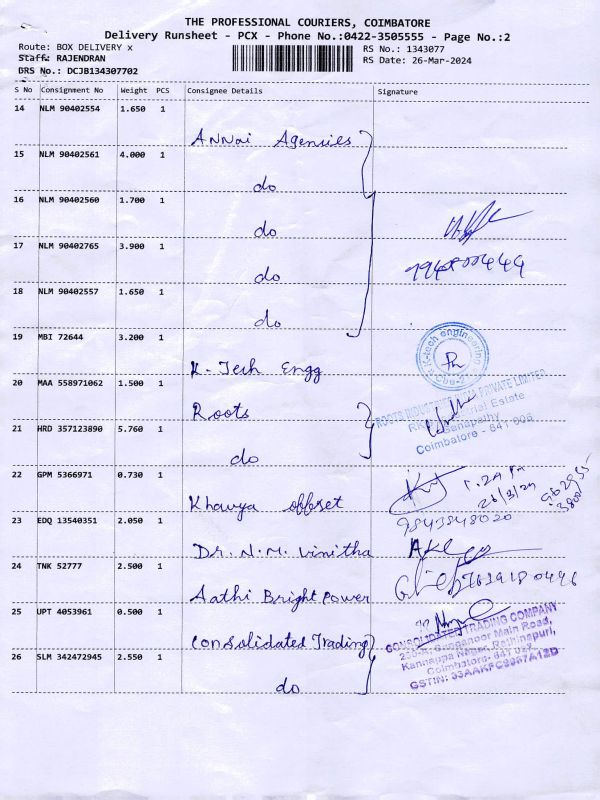 THE PROFESSIONAL COURIERS, COIMBATORE
Delivery Runsheet - PCX - Phone No.:0422-3505555 - Page No.:2
Route: BOX DELIVERY x
RS No.: 1343077
Staff: RAJENDRAN
RS Date: 26-Mar-2024
DRS No.: DCJB134307702
S No Consignment No Weight PCS Consignee Details Signature
14 NLM 90402554 1.650 1
Annai Agencies
15 NLM 90402561 4.000 1
do
16 NLM 90402560 1.700 1
do
17 NLM 90402765 3.900 1
do
18 NLM 90402557 1.650 1
do
19 MBI 72644 3.200 1
K-Tech Engg
20 MAA 558971062 1.500 1
Roots
21 HRD 357123890 5.760 1
do
ROOTS INDUSTRIES PRIVATE LIMITED
Estate
Ganapathy
Coimbatore - 641 006
22 GPM 5366971 0.730 1
Khavya offset
26/3/24
9543548020
23 EDQ 13540351 2.050 1
Dr. N.M. Vinitha
24 TNK 52777 2.500 1
Aathi Bright Power
25 UPT 4053961 0.500 1
Consolidated Trading
CONSOLIDATED TRADING COMPANY
Main Road,
Kannappa Nagar, Rathinapuri,
Coimbatore- 641 027
26 SLM 342472945 2.550 1
do